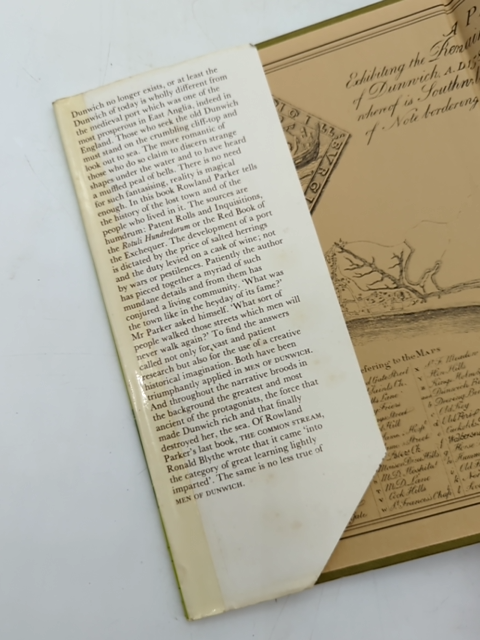 Dunwich no longer exists, or at least the
Dunwich of today is wholly different from
the medieval port which was one of the
most prosperous in East Anglia, indeed in
England. Those who seek the old Dunwich
must stand on the crumbling cliff-top and
look out to sea. The more romantic of
those who do so claim to discern strange
shapes under the water and to have heard
a muffled peal of bells. There is no need
for such fantasising, reality is magical
enough. In this book Rowland Parker tells
the history of the lost town and of the
people who lived in it. The sources are
humdrum: Patent Rolls and Inquisitions,
the Rotuli Hundredorum or the Red Book of
the Exchequer. The development of a port
is dictated by the price of salted herrings
and the duty levied on a cask of wine; not
by wars or pestilences. Patiently the author
has pieced together a myriad of such
mundane details and from them has
conjured a living community. 'What was
the town like in the heyday of its fame?'
Mr Parker asked himself. 'What sort of
people walked those streets which men will
never walk again?' To find the answers
called not only for vast and patient
research but also for the use of a creative
historical imagination. Both have been
triumphantly applied in MEN OF DUNWICH.
And throughout the narrative broods in
the background the greatest and most
ancient of the protagonists, the force that
made Dunwich rich and that finally
destroyed her, the sea. Of Rowland
Parker's last book, THE COMMON STREAM,
Ronald Blythe wrote that it came 'into
the category of great learning lightly
imparted'. The same is no less true of
MEN OF DUNWICH.
A P
Exhibiting the Remark
of Dunwich A.D.
whereof is Southw
of Note bordering
fering to the Maps